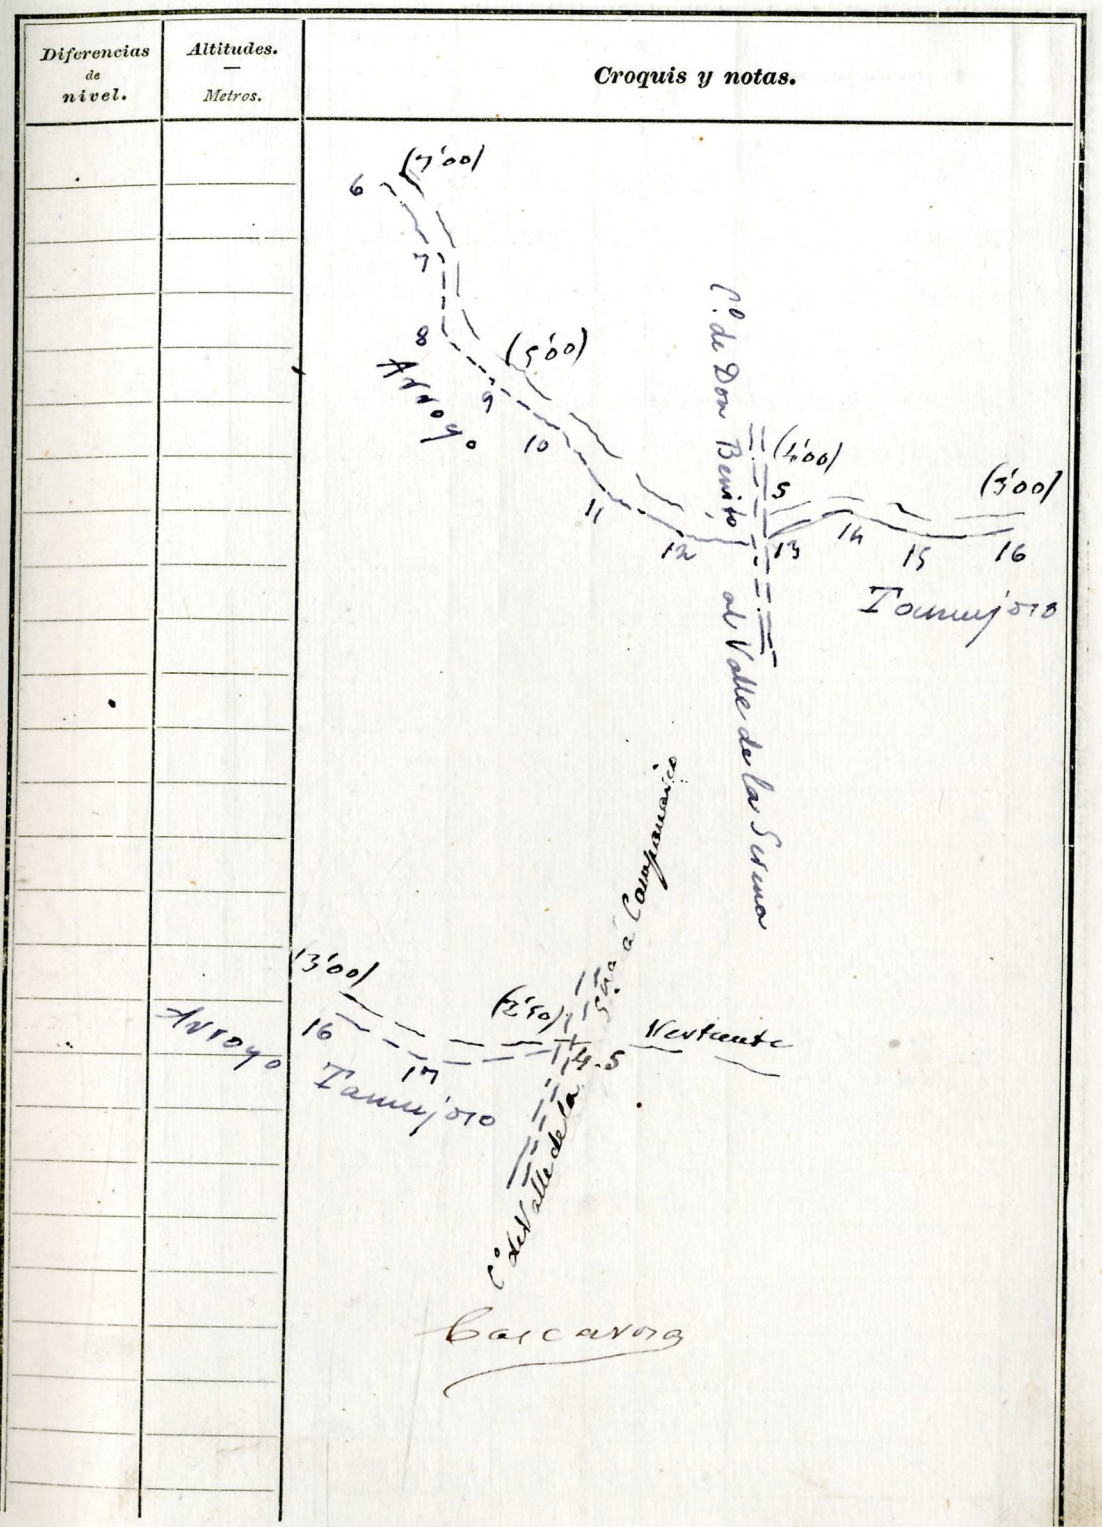 Diferencias
de
nivel.
Altitudes.
Metros.
Croquis y notas.
(7'00)
6
7
8
Arroyo
(5'00)
9
10
11
12
Cº. de Don Benito al Valle de la Serena
(4'00)
5
13
14
15
16
(3'00)
Tamujoso
(3'00)
16
Arroyo
17
Tamujoso
(2'50)
4-5
Vertiente
Cº de Valle de la Sna a Campanario